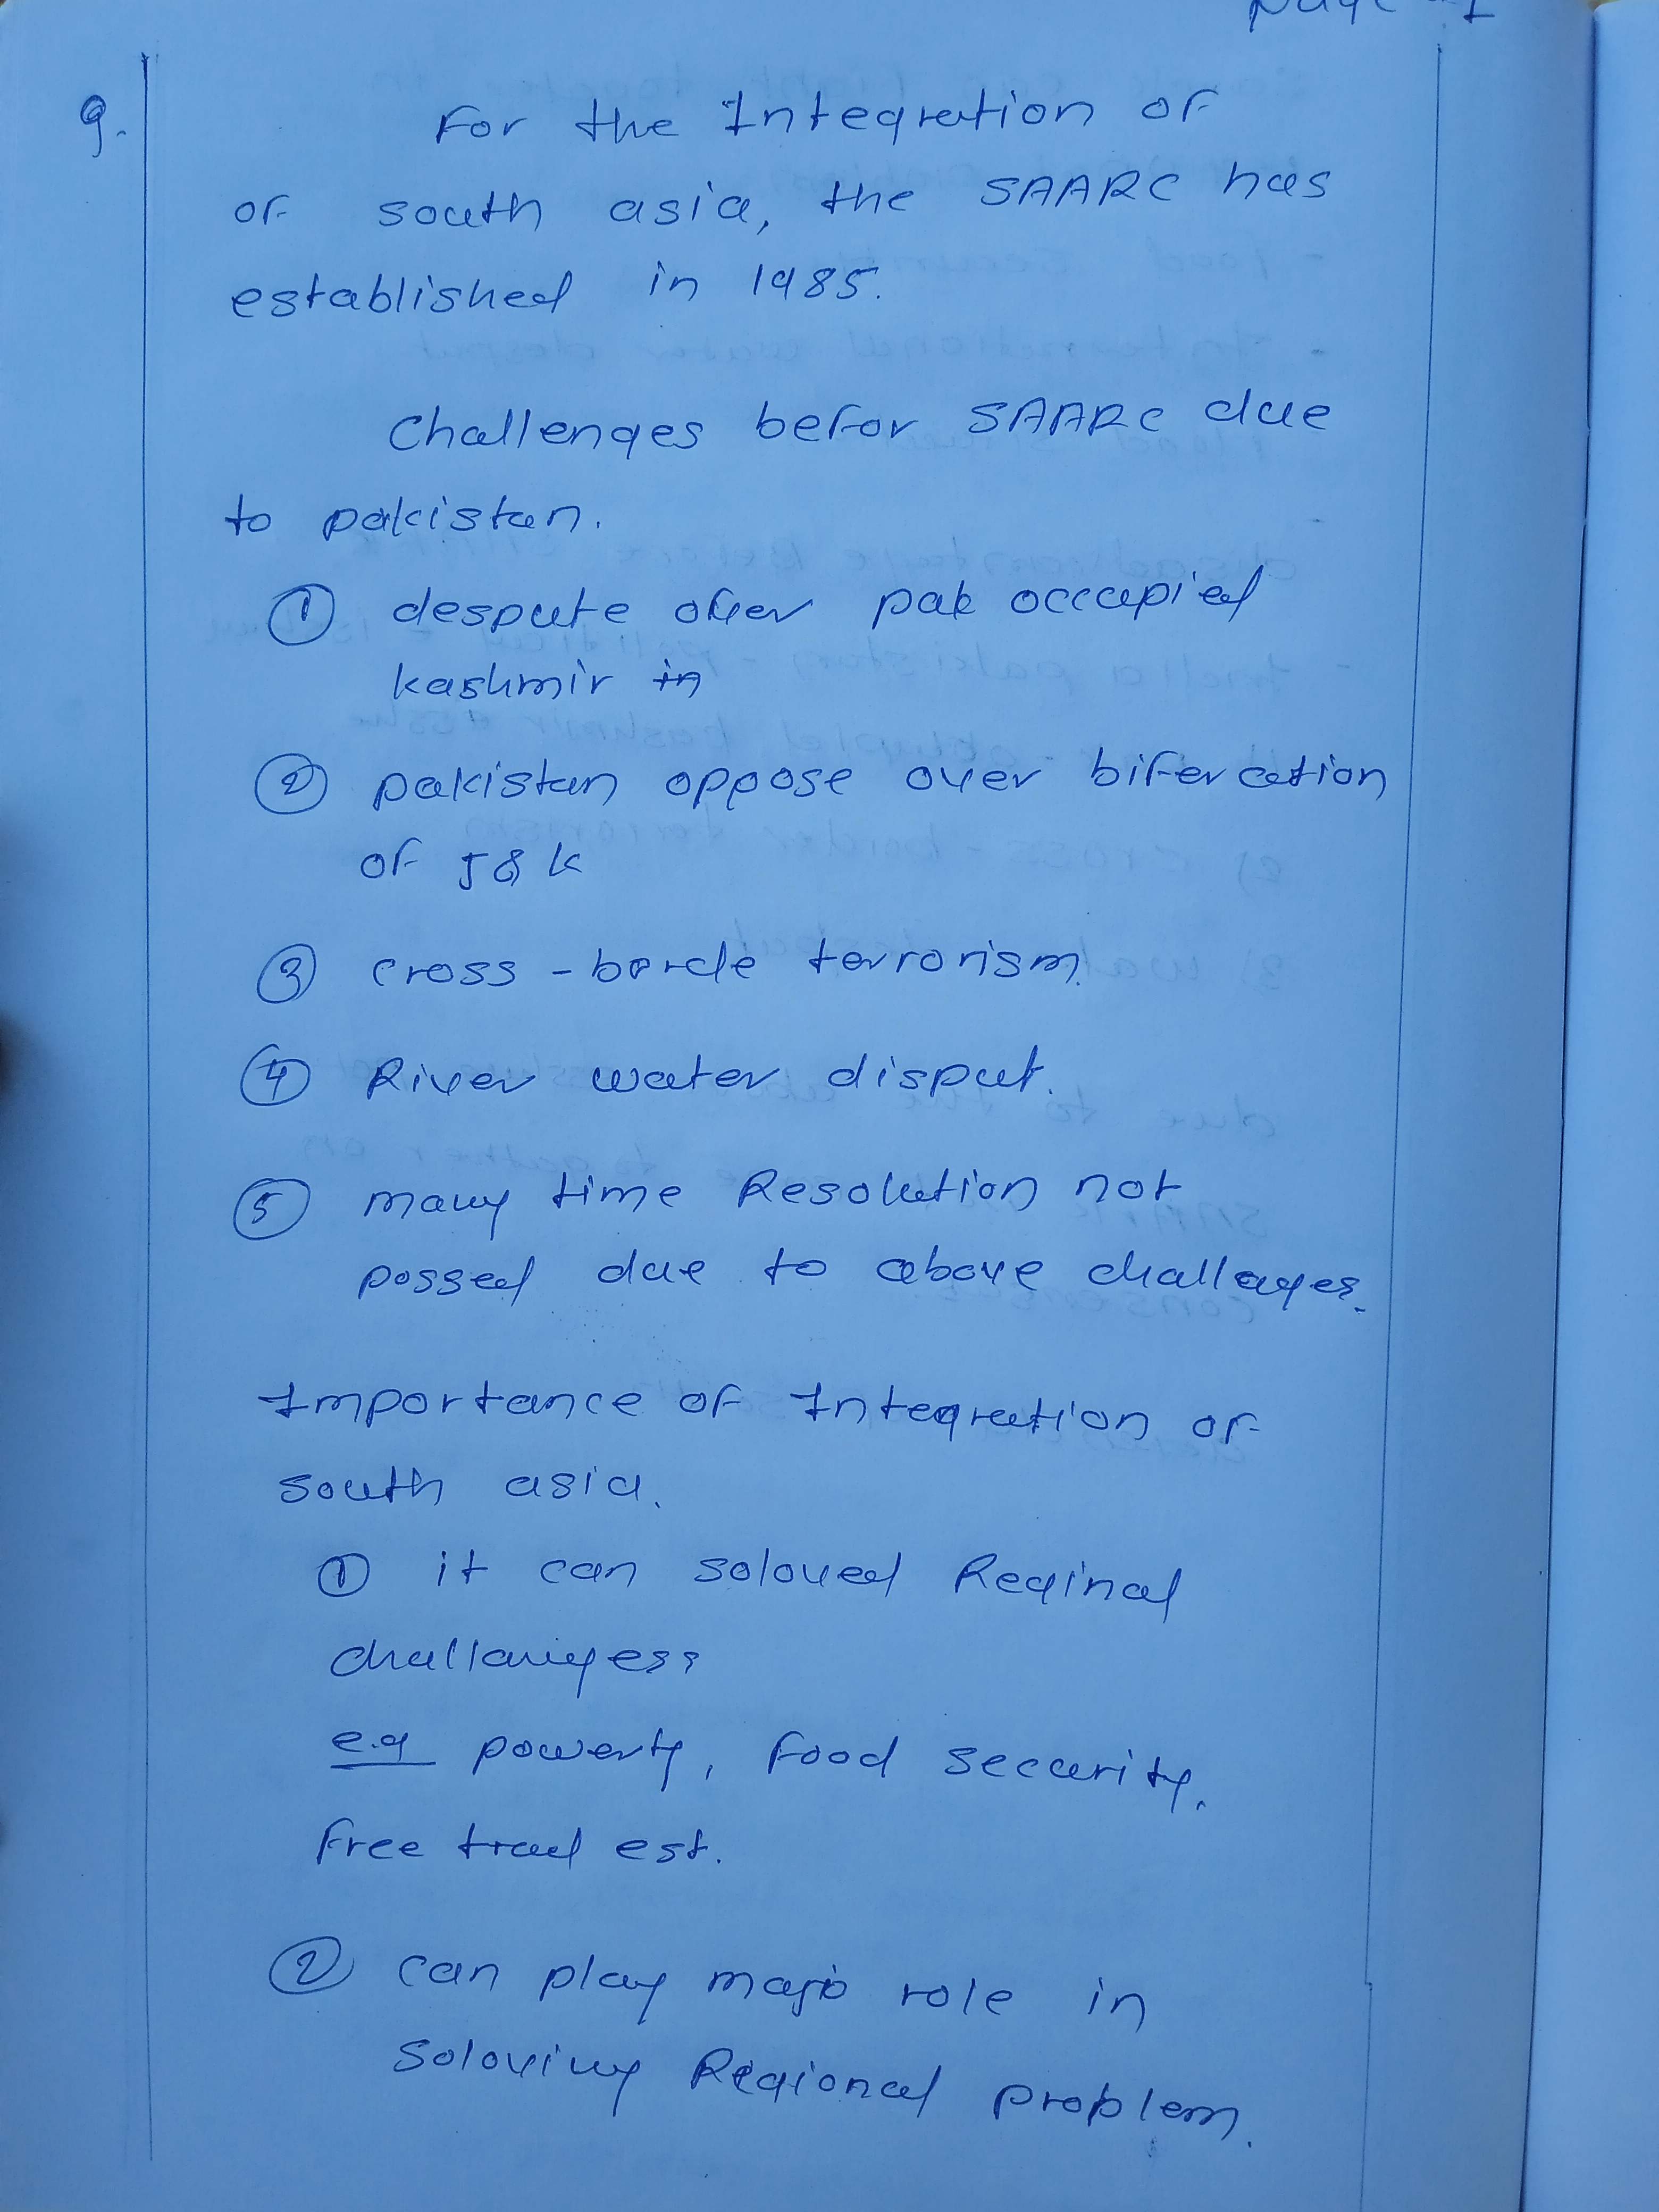 page - 1
9. For the Integration of
of south asia, the SAARC has
established in 1985.
Challenges befor SAARC due
to pakistan.
① despute over pak occupied
kashmir in
② pakistan oppose over bifercation
of J & K
③ cross - borde terrorism.
④ River water disput.
⑤ many time Resolution not
possed due to above challanges.
Importance of Integration of
south asia.
① it can soloved Reginal
challangess
e.g powerty, food security,
free trad est.
② can play majo role in
soloving Regional problem.